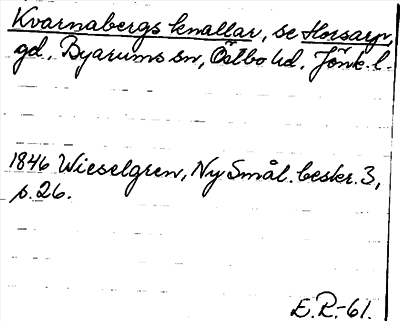 Kvarnabergs knallar, se Horsarp,
gd., Byarums sn, Östbo hd, Jönk. l.
1846 Wieselgren, Ny Smål. beskr. 3,
s. 26.
E.R.-61.